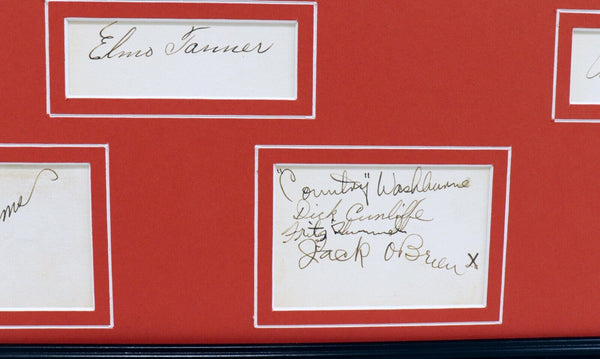 Elmo Tanner
"Country" Washburne
Dick Cunliffe
Fritz
Jack O'Brien x